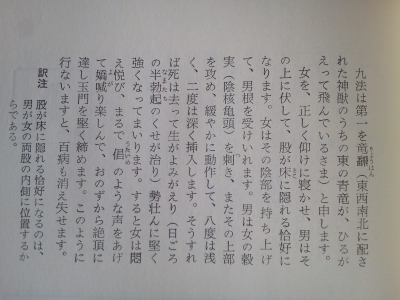 九法は第一を竜飜（東西南北に配さ
れた神獣のうちの東の青竜が、ひるが
えって飛んでいるさま）と申します。
女を、正しく仰けに寝かせ、男はそ
の上に伏して、股が床に隠れる恰好に
なります。女はその陰部を持ち上げ
て、男根を受けいれます。男は女の穀
実（陰核亀頭）を刺き、またその上部
を攻め、緩やかに動作して、八度は浅
く、二度は深く挿入します。そうすれ
ば死は去って生がよみがえり（日ごろ
の半勃起のくせが治り）勢壮んに堅く
強くなってまいります。すると女は悶
え悦び、まるで倡のような声をあげ
て嬌喊り楽しんで、おのずから絶頂に
達し玉門を堅く締めます。このように
行ないますと、百病も消え失せます。
訳注　股が床に隠れる恰好になるのは、
男が女の両股の内側に位置するか
らである。